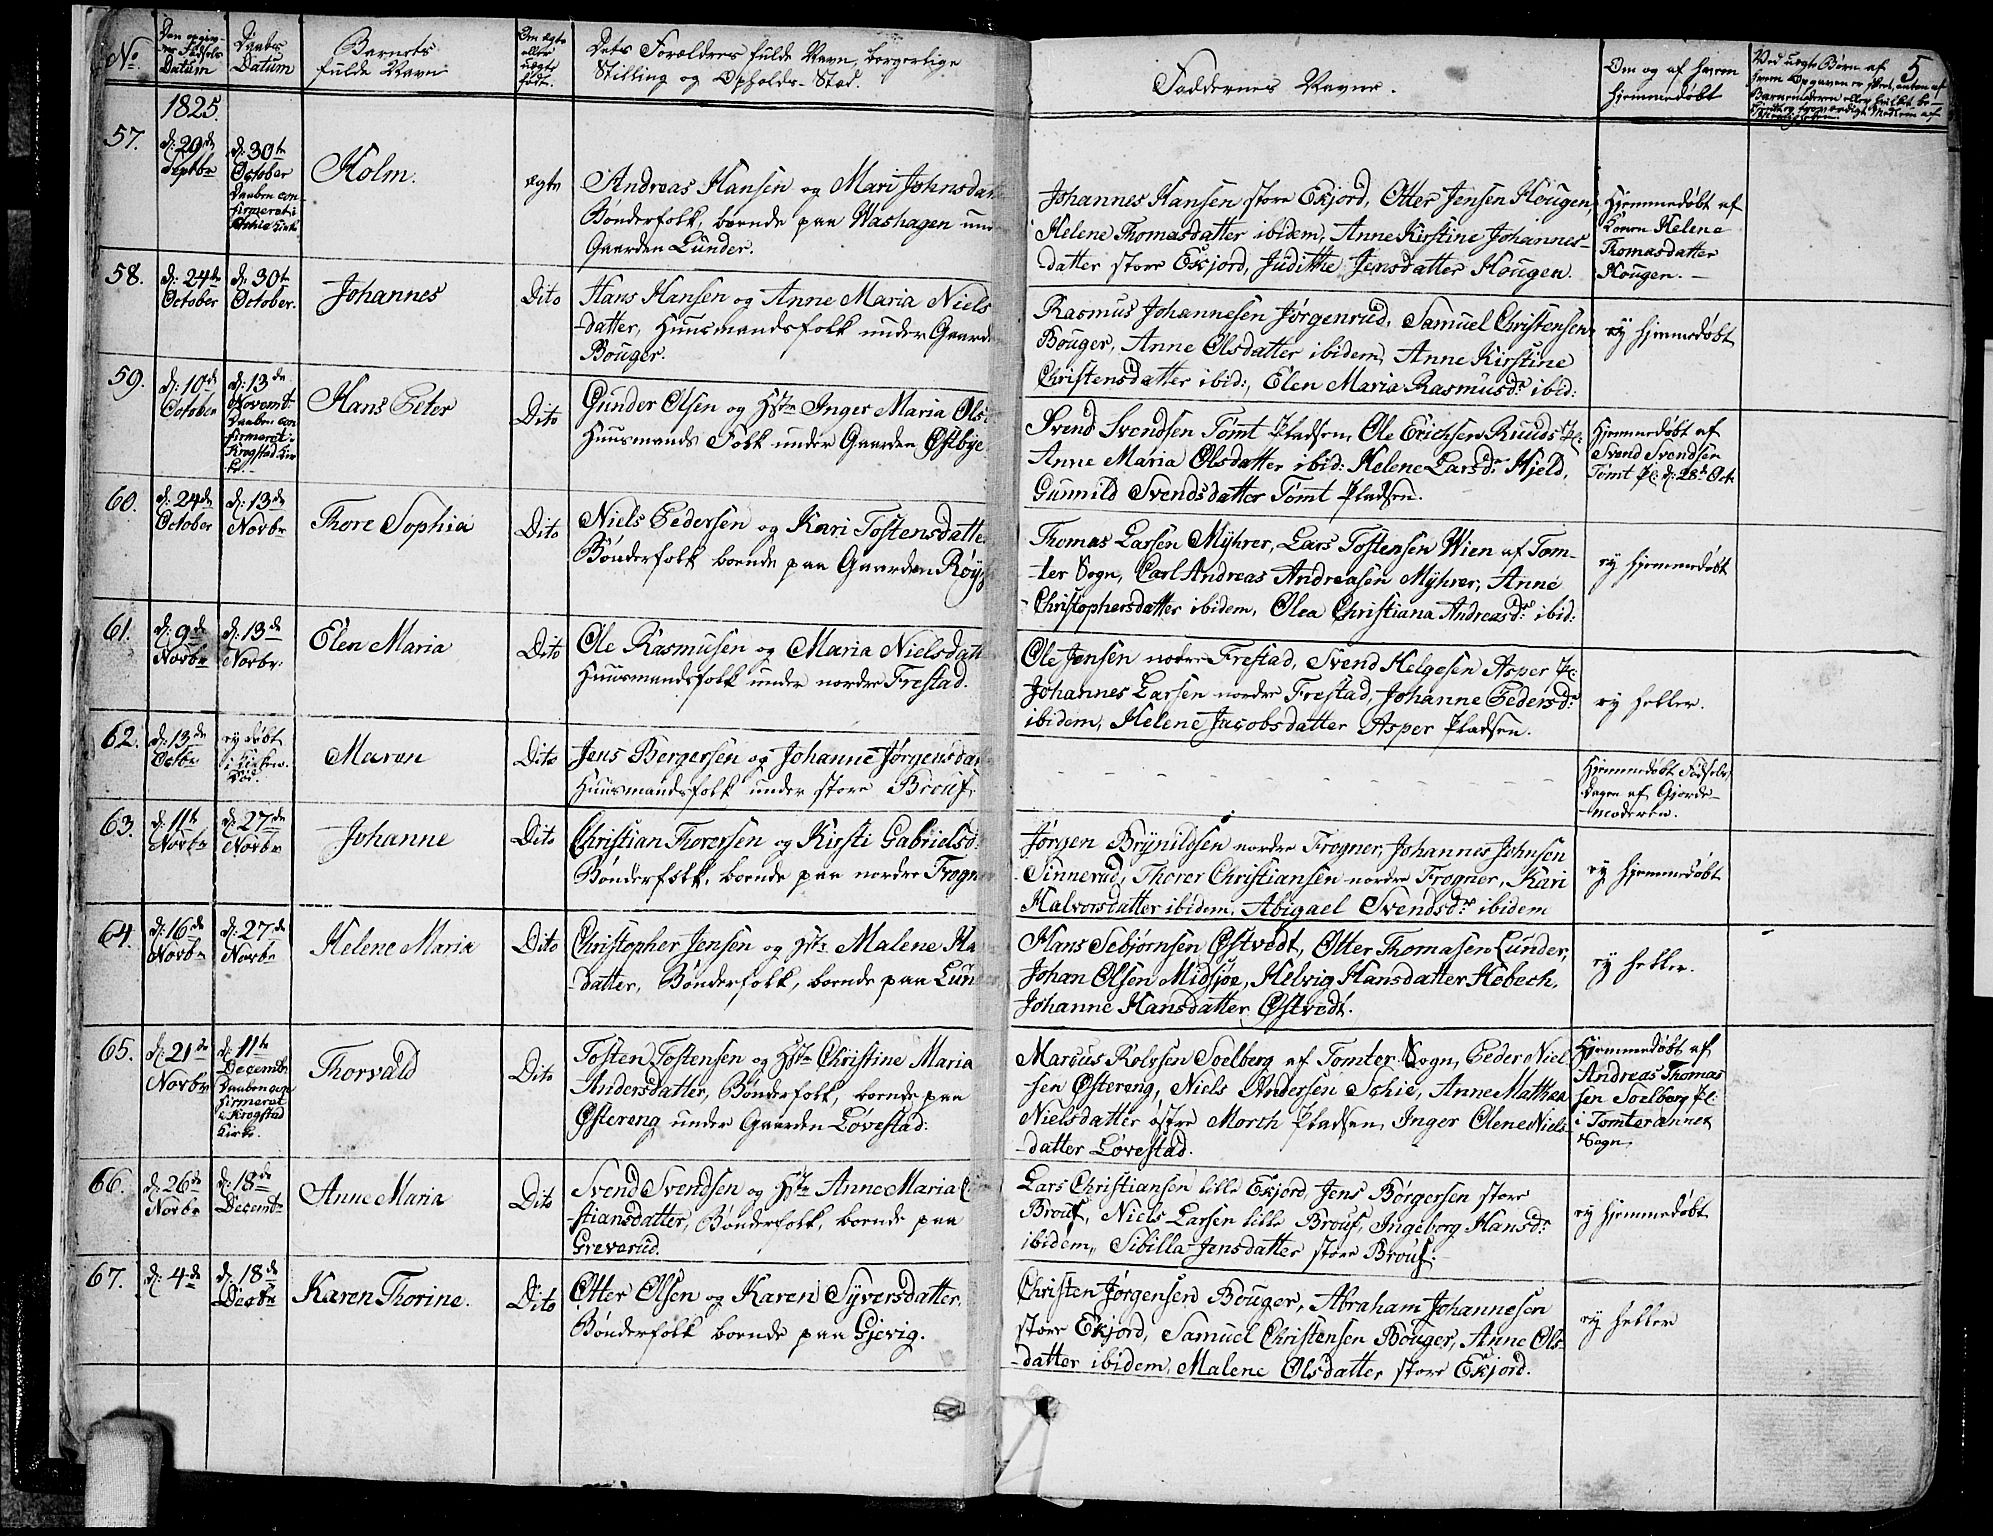 No.
Den opgiv-
ne Fødsels
Datum
Daabs
Datum
Barnets
fulde Navn
Om ægte
eller
uægte
født.
Dets Forældres fulde Navn, borgerlige
Stilling og Opholds-Sted.
Faddernes Navne.
Om og af hvem
hjemmedøbt
Ved uægte Børn af
hvem Opgaven er skeet, enten af
Barnemoderen eller
5
1825.
57.
d: 29de
Septbr
d: 30te
October
Daaben con-
firmeret i
Kirke
Holm.
ægte
Andreas Hansen og Mari Johnsdatter
Bønderfolk, boende paa Washagen under
Gaarden Lunder.
Johannes Hansen store Ekjord, Otter Jensen Hougen,
Helene Thomasdatter ibidem, Anne Kirstine Johannes-
datter store Ekjord, Judithe Jensdatter Hougen.
Hjemmedøbt af
Konen Helene
Thomasdatter
Hougen.
58.
d: 24de
October
d: 30te
October.
Johannes
Dito
Hans Hansen og Anne Maria Niels
datter, Huusmandsfolk under Gaarden
Bouger.
Rasmus Johannesen Jørgenrud, Samuel Christensen
Bouger, Anne Olsdatter ibidem, Anne Kirstine
Christensdatter ibid:, Elen Maria Rasmusdr ibid:
ey hjemmedøbt
59.
d: 10de
October
d: 13de
Novembr
Daaben con-
firmeret i
Krogstad Kir-
ke.
Hans Peter
Dito
Gunder Olsen og Hstr Inger Maria Ols
Huusmands Folk under Gaarden Østbye
Svend Svendsen Tomt Pladsen, Ole Erichsen Ruuds Pl:
Anne Maria Olsdatter ibid: Helene Larsdr Hjeld,
Gunnild Svendsdatter Tomt Pladsen.
Hjemmedøbt af
Svend Svendsen
Tomt Pl: d: 28de Oct.
60.
d: 24de
October
d: 13de
Novbr
Thore Sophia
Dito
Niels Pedersen og Kari Tostensdatter
Bønderfolk boende paa Gaarden
Thomas Larsen Myhrer, Lars Tostensen Wien af Tom-
ter Sogn, Carl Andreas Andreasen Myhrer, Anne
Christophersdatter ibidem, Olea Christiana Andreasdr ibid:
ey hjemmedøbt
61.
d: 9de
Novbr
d: 13de
Novbr.
Elen Maria
Dito
Ole Rasmusen og Maria Nielsdatt
Huusmandsfolk under nordre Frestad.
Ole Jensen nordre Frestad, Svend Helgesen Asper Pl:
Johannes Larsen nordre Frestad, Johanne Pedersdr
ibidem, Helene Jacobsdatter Asper Pladsen.
ey heller.
62.
d: 13de
Octbr
ey døbt
i Kirken.
Død.
Maren
Dito
Jens Bergersen og Johanne Jørgensdatter
Huusmandsfolk under store Brouf.
Hjemmedøbt Fødsels-
Dagen af Gjorde-
moderen.
63.
d: 11te
Novbr
d: 27de
Novbr
Johanne
Dito
Christian Thorersen og Kirsti Gabrielsd:
Bønderfolk, boende paa nordre Frogner
Jørgen Brynildsen nordre Frogner, Johannes Johnsen
Sinnerud, Thorer Christiansen nordre Frogner, Kari
Halvorsdatter ibidem, Abigael Svendsdr ibidem
ey hjemmedøbt
64.
d: 16de
Novbr
d: 27de
Novbr
Helene Maria
Dito
Christopher Jensen og Hstr Malene Ha
datter, Bønderfolk, boende paa Lunder
Hans Sebjørnsen Østvedt, Otter Thomasen Lunder,
Johan Olsen Midsjøe, Helvig Hansdatter Hebech,
Johanne Hansdatter Østvedt.
ey heller.
65.
d: 21de
Novbr
d: 11te
Decembr
Daaben con-
firmeret
i Krogstad
Kirke.
Thorvald
Dito
Tosten Tostensen og Hstr Christine Maria
Andersdatter, Bønderfolk, boende paa
Østereng under Gaarden Løvestad.
Marcus Rolvsen Soelberg af Tomter Sogn, Peder Niel-
sen Østereng, Niels Andersen Schie, Anne Mathea
Nielsdatter østre Morth Pladsen, Inger Olene Niels-
datter Løvestad.
Hjemmedøbt af
Andreas Thomas
sen Soelberg Pl:
i Tomter annex
Sogn.
66.
d: 26de
Novbr
d: 18de
Decembr
Anne Maria
Dito
Svend Svendsen og Hstr Anne Maria
stiansdatter, Bønderfolk, boende paa
Greverud.
Lars Christiansen lille Ekjord, Jens Børgersen store
Brouf, Niels Larsen lille Brouf, Ingeborg Hansdr
ibidem, Sibilla Jensdatter store Brouf.
ey hjemmedøbt
67.
d: 4de
d: 18de
Decbr
Karen Thorine.
Dito
Otter Olsen og Karen Syversdatter,
Bønderfolk boende paa Gjevig.
Christen Jørgensen Bouger, Abraham Johannesen
store Ekjord, Samuel Christensen Bouger, Anne Ols-
datter ibidem, Malene Olsdatter store Ekjord.
ey heller